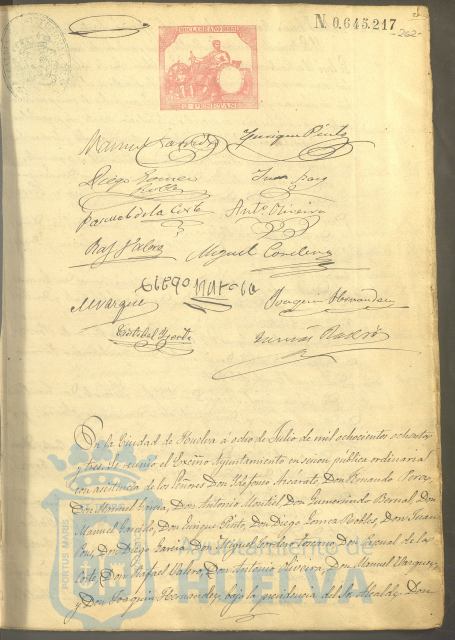 N. 0.645.217
-262-
2 PESETAS
Enrique Pinto
Diego Gomez
Robles
Juan
Pascual de la Corte
Antº Oliveira
Raf. Valera
Miguel
diego Garcia
M Vazquez
Joaquin Hernandez
Cristobal
En la Ciudad de Huelva á ocho de Julio de mil ochocientos ochenta
y tres, se reunió el Excmo Ayuntamiento en sesion pública ordinaria
con asistencia de los Señores Don Ildefonso Don Fernando Perez,
Don Manuel Garcia, Don Antonio Montiel, Don Gumersindo Bernal, Don
Manuel Garrido, Don Enrique Pinto, Don Diego Gomez Robles, Don Juan
Don Diego Garcia, Don Miguel Don Pascual de la
Corte, Don Rafael Valera, Don Antonio Oliveira, Don Manuel Vazquez
y Don Joaquin Hernandez, bajo la presidencia del Sr. Alcalde Don
PORTUS MARIS
Ayuntamiento de
HUELVA